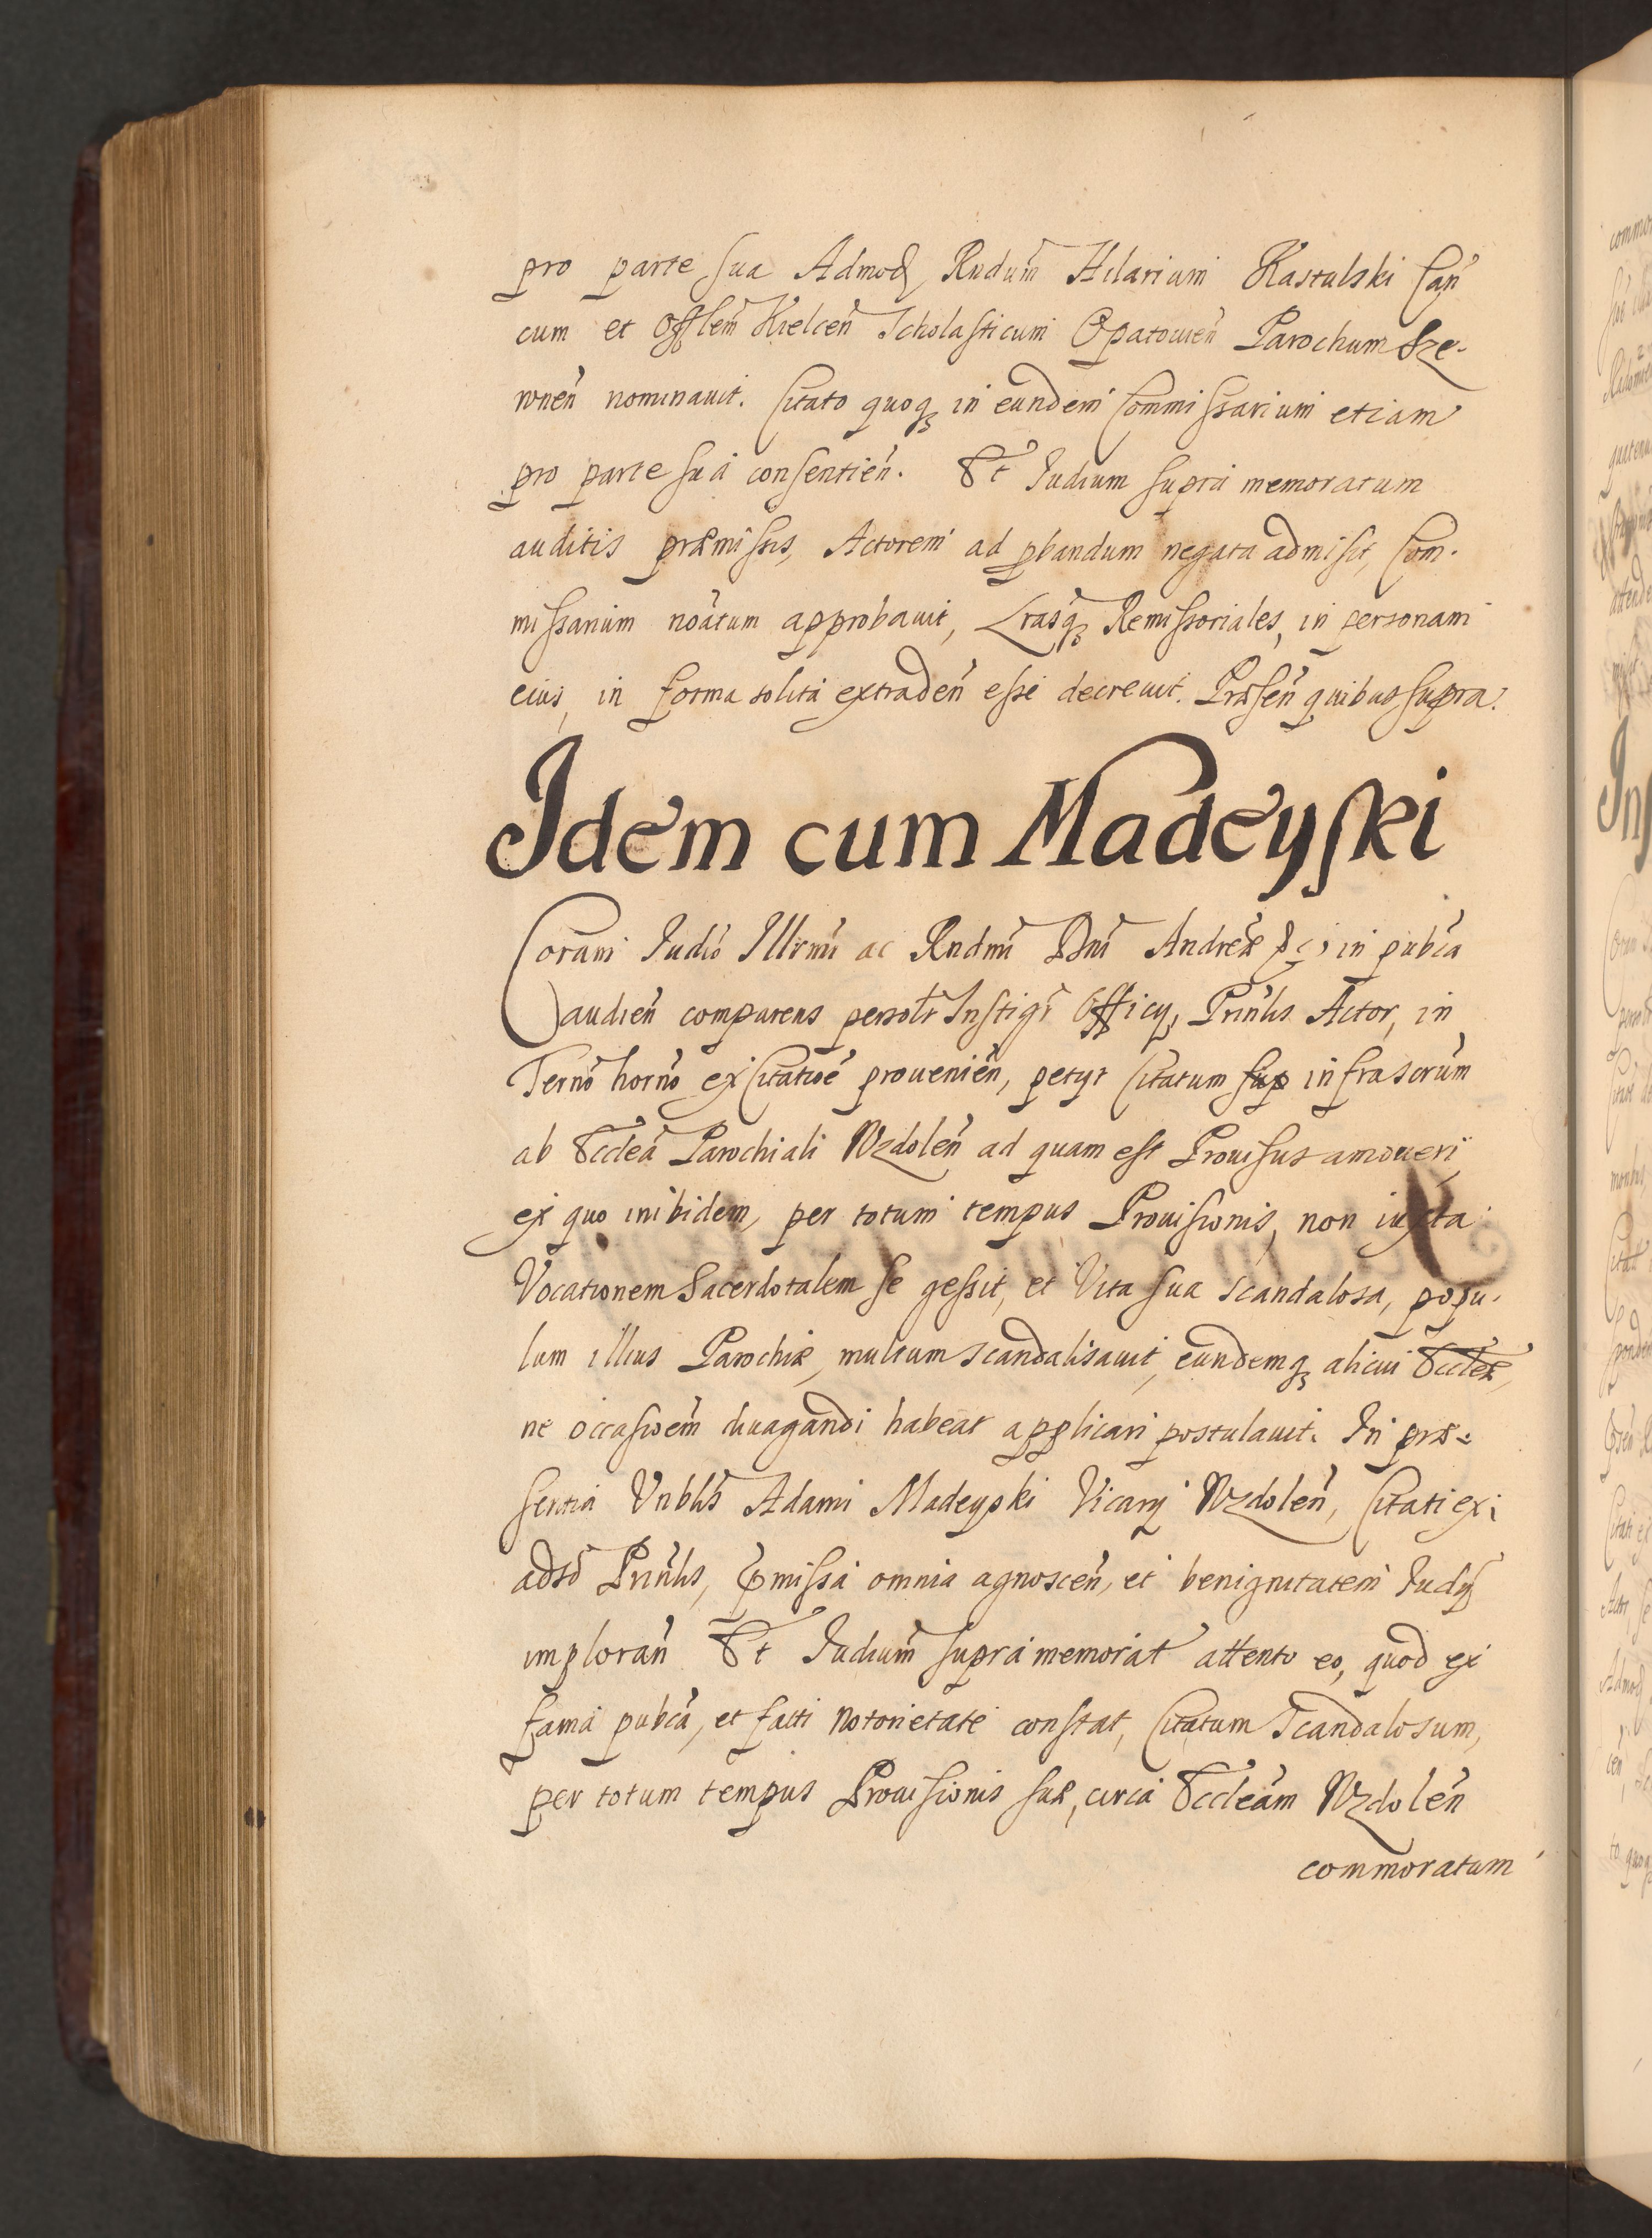 pro parte sua Admod Rndum Hilarium Kastulski Can
cum et Offlem Kielcen Scholasticum Opatovien Parochum Sze-
wnen nominavit. Citato quoq in eundem Commissarium etiam
pro parte sua consentien. Et Judium supra memoratum
auditis præmissis, Actorem ad pbandum negata admisit, Com-
missarium noatum approbavit, Lrasq Remissoriales, in personam
eius, in forma solita extraden esse decrevit. Præsen quibus supra.
Idem cum Madeyski
Coram Judio Illrmi ac Rndmi Dni Andreæ &c, in pubca
audien comparens persolr Instigr Officy, Prinlis Actor, in
Terno horno ex Citatioe provenien, petyt Citatum sup infrascrum
ab Ecclea Parochiali Wzdolen ad quam est Provisus amoveri,
ex quo inibidem, per totum tempus Provisionis, non iuxta
Vocationem Sacerdotalem se gessit, et Vita sua scandalosa, popu-
lum illius Parochiæ, multum scandalisavit, eundemq alicui Eccleæ,
ne occasioem divagandi habeat applicari postulavit. In præ-
sentia Vnblis Adami Madeyski Vicary Wzdolen, Citati ex
adso Prinlis, pmissa omnia agnoscen, et benignitatem Judy
imploran Et Judium supra memorat attento eo, quod ex
fama pubca, et facti notorietate constat, Citatum Scandalosum,
per totum tempus Provisionis suæ, circa Eccleam Wzdolen
commoratum